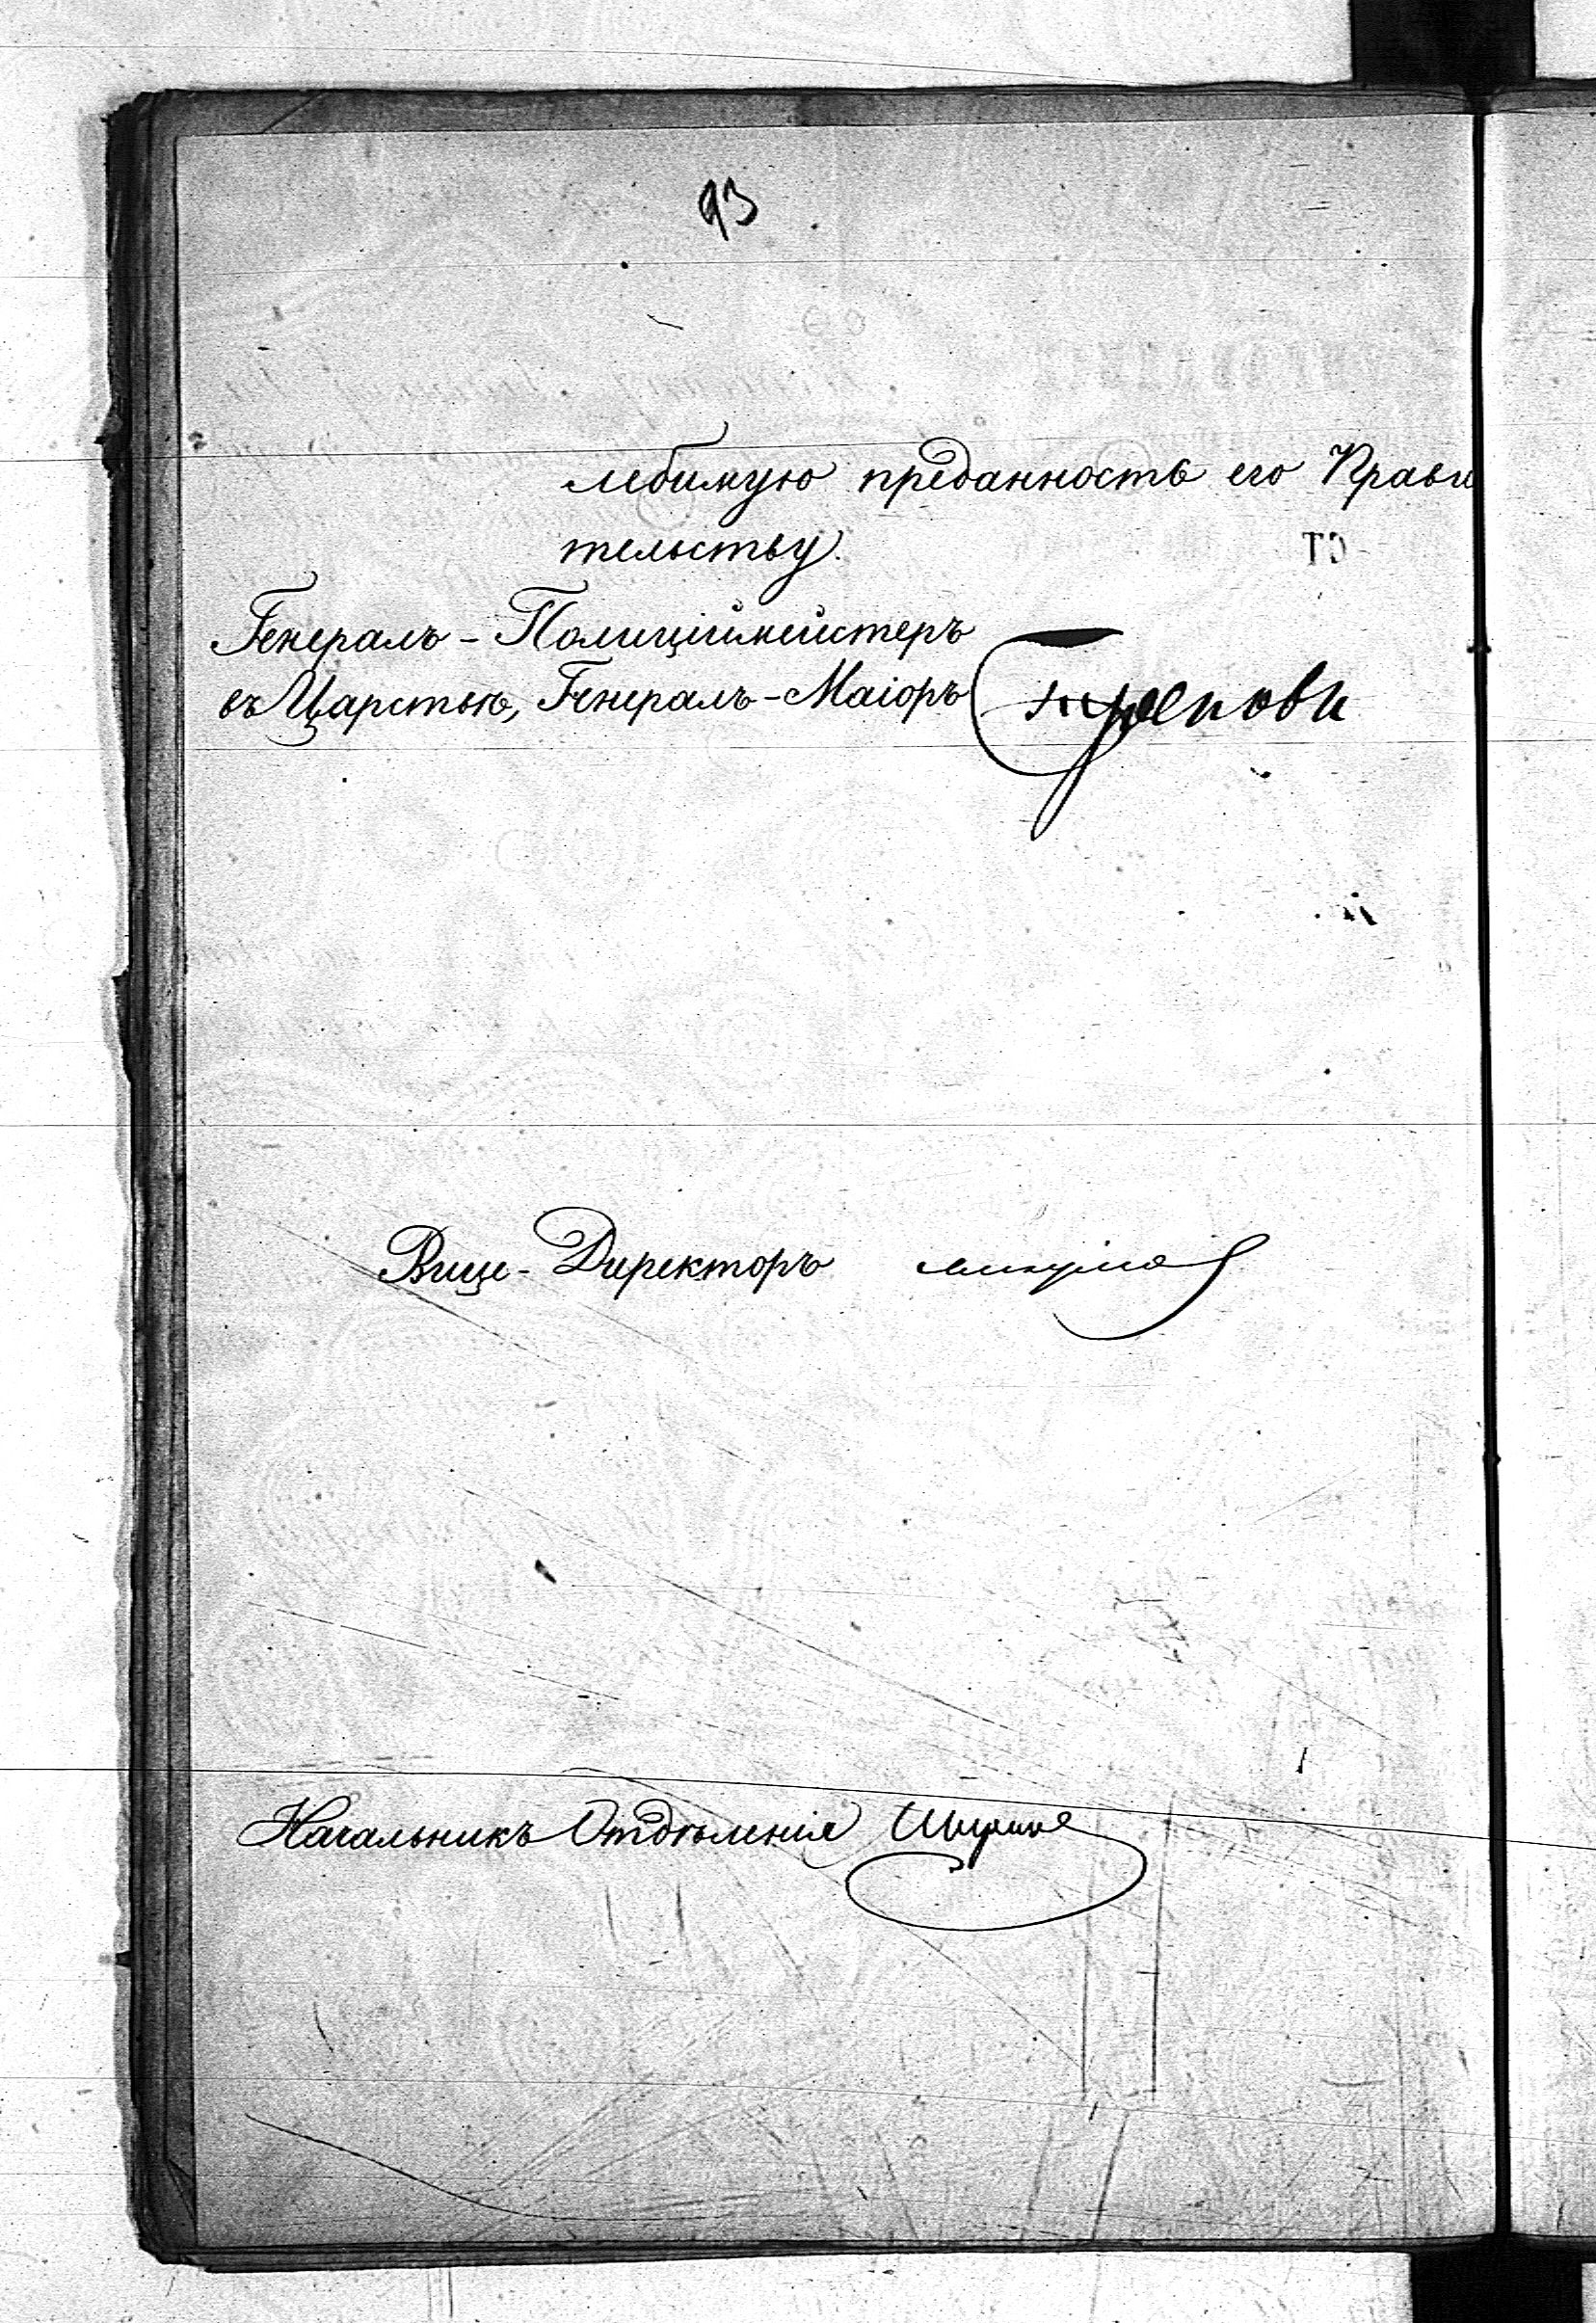 93
лебимую преданность его Прави
тельству.
Генералъ-Полиціймейстеръ
въ Царствѣ, Генералъ-Маіоръ Треповъ
Вице-Директоръ
Начальникъ Отдѣленія